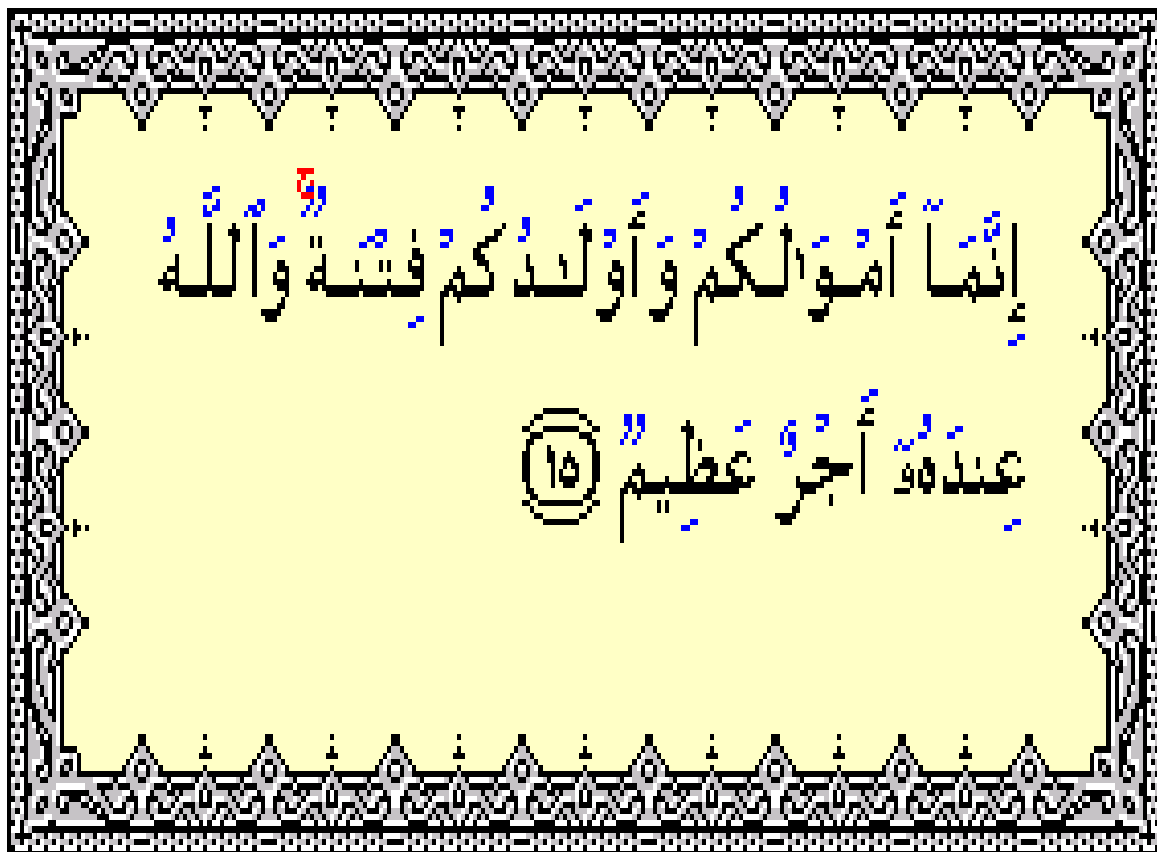 إِنَّمَآ أَمْوَٰلُكُمْ وَأَوْلَـٰدُكُمْ فِتْنَةٌ ۚ وَٱللَّهُ
عِندَهُۥٓ أَجْرٌ عَظِيمٌ ١٥